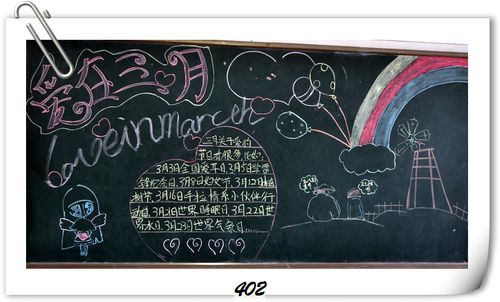 爱在三月
Love in march
三月关于爱的
节日有很多,比如:
3月3日全国爱耳日,3月5日学雷
锋纪念日,3月8日妇女节,3月12日植
树节,3月16日手拉
3月21日世界睡眠日,3月22世
界水日,3月23世界气象日
402